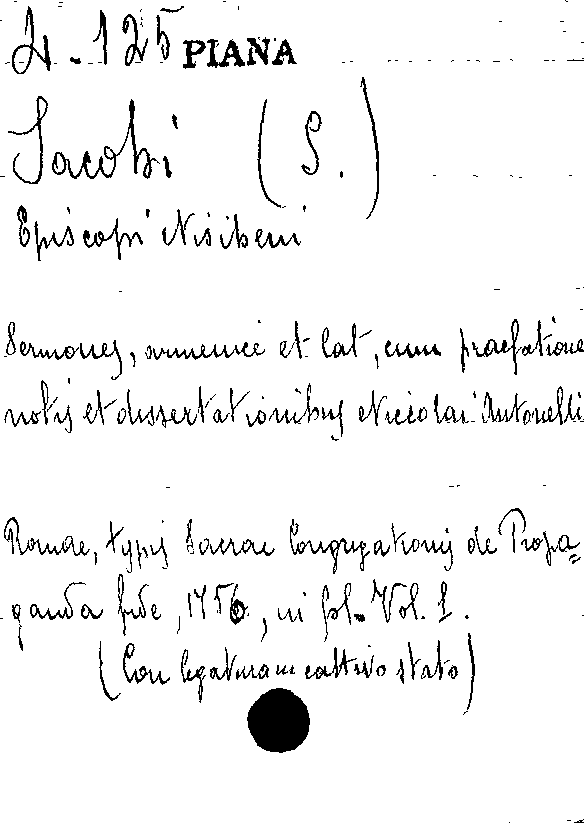 4.125 PIANA
Jacobi (S.)
Episcopi Nisibeni
Sermones, armenice et lat, cum praefatione
notis et dissertationibus Niccolai Antonelli
Romae, typis Sacrae Congregationis de Propa=
ganda fide, 1756, in fol. Vol. 1.
(Con legatura in cattivo stato)